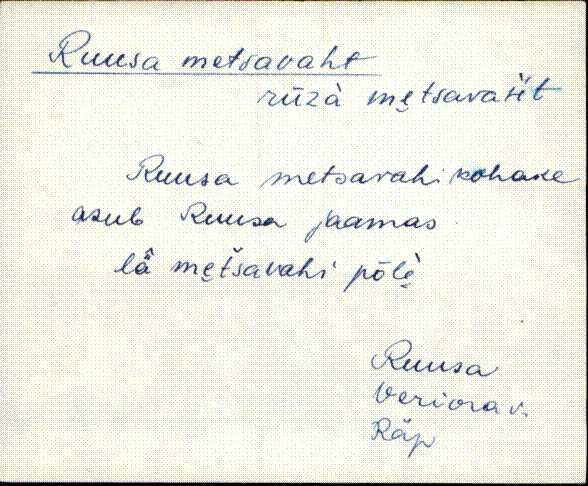 Ruusa metsavaht
rūzà mętsavaht
Ruusa metsavahi kohake
asub Ruusa jaamas.
lǟ mętšavahi pōlè
Ruusa
Veriora v.
Räp